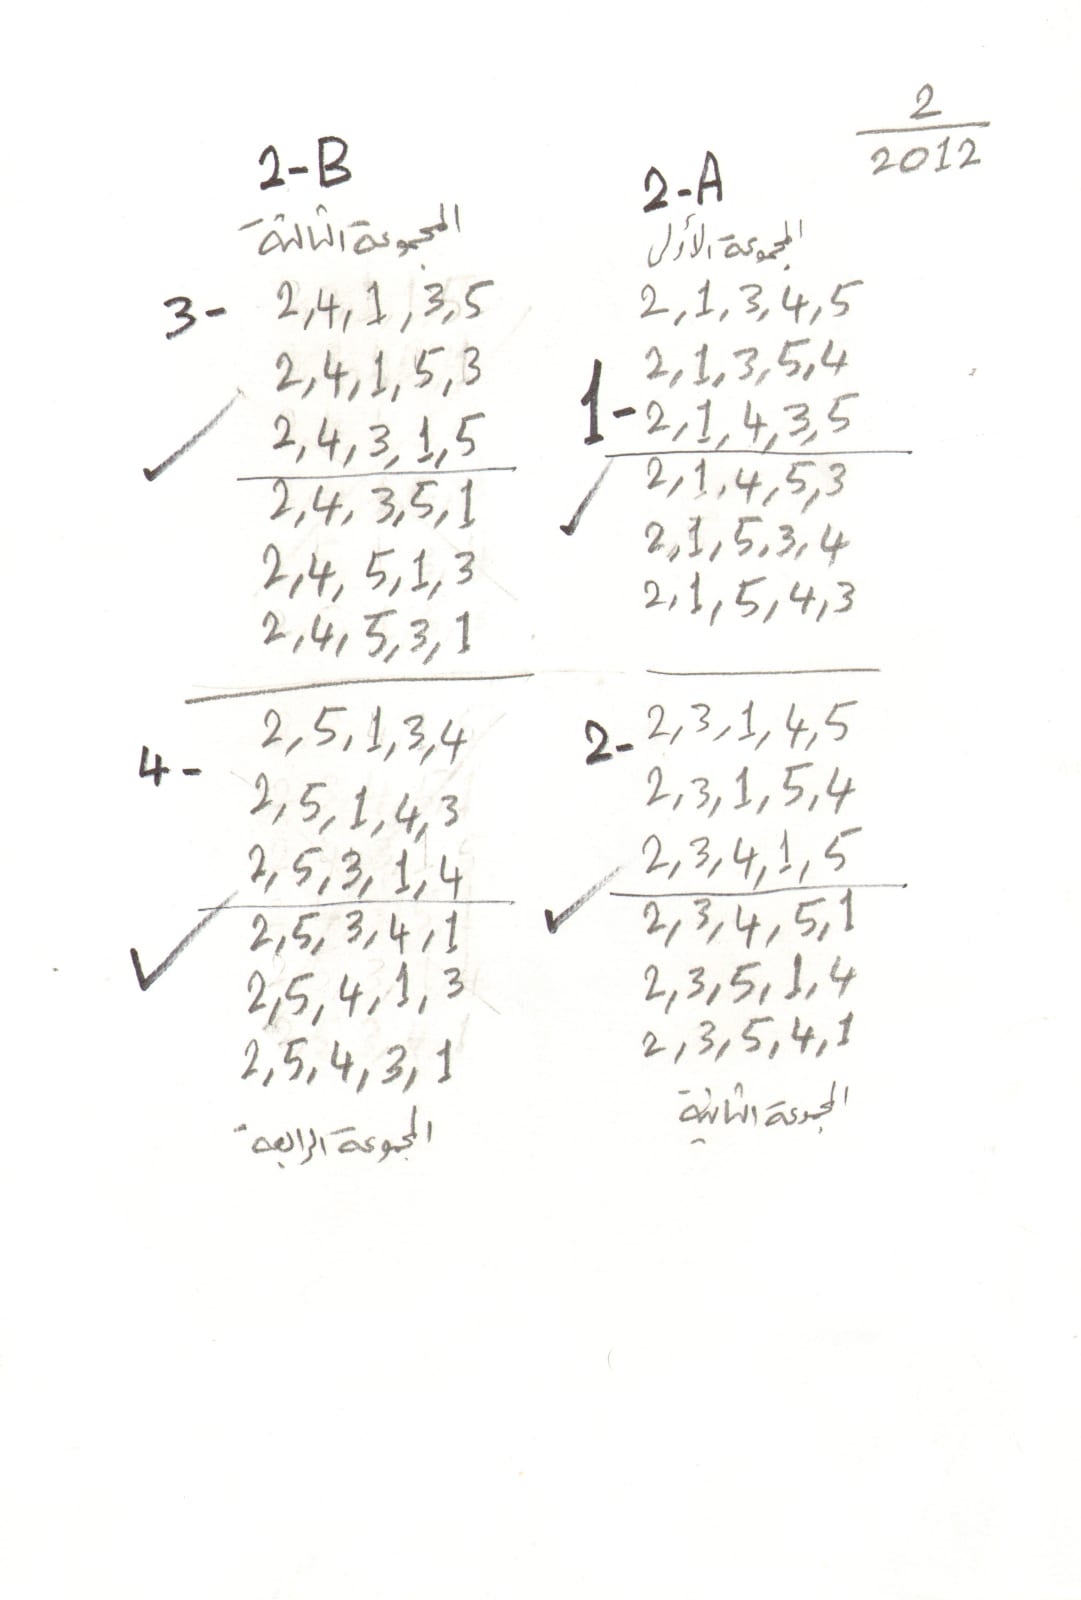 2
2012
2-A
المجموعة الأولى
2,1,3,4,5
2,1,3,5,4
1- 2,1,4,3,5
2,1,4,5,3
2,1,5,3,4
2,1,5,4,3
2- 2,3,1,4,5
2,3,1,5,4
2,3,4,1,5
2,3,4,5,1
2,3,5,1,4
2,3,5,4,1
المجموعة الثانية
2-B
المجموعة الثالثة
3- 2,4,1,3,5
2,4,1,5,3
2,4,3,1,5
2,4,3,5,1
2,4,5,1,3
2,4,5,3,1
4- 2,5,1,3,4
2,5,1,4,3
2,5,3,1,4
2,5,3,4,1
2,5,4,1,3
2,5,4,3,1
المجموعة الرابعة